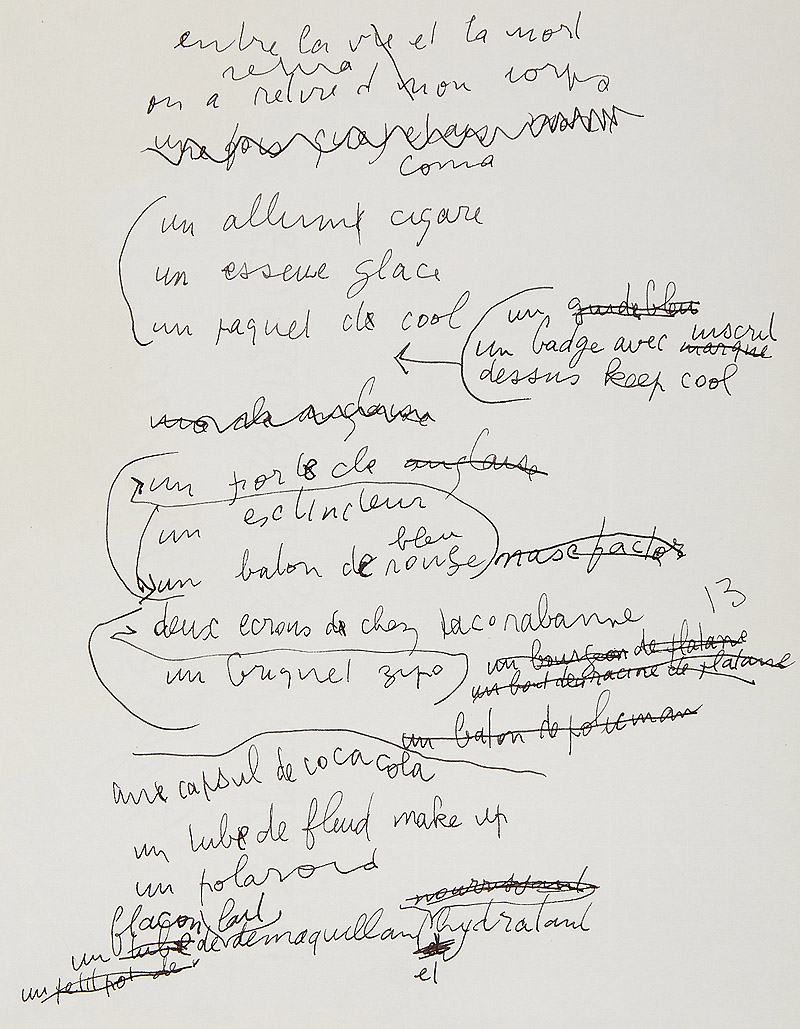 entre la vie et la mort
retira
on a retire d mon corps
une fois
coma
un allume cigare
un essuie glace
un paquet de cool
un guide bleu
un badge avec inscrit
marque
dessus keep cool
un porte cle anglais
un exlincleur
bleu
un baton de rouge nase factor
deux ecrous de chez pacorabanne
13
un briquet zipo
un bourgeon de platane
un bout de racine de platane
un baton de policman
une capsul de coca cola
un tube de fleud make up
un polaroid
nourrissant
flacon lait
un tube de demaquillant hydratant
et
un petit pot de